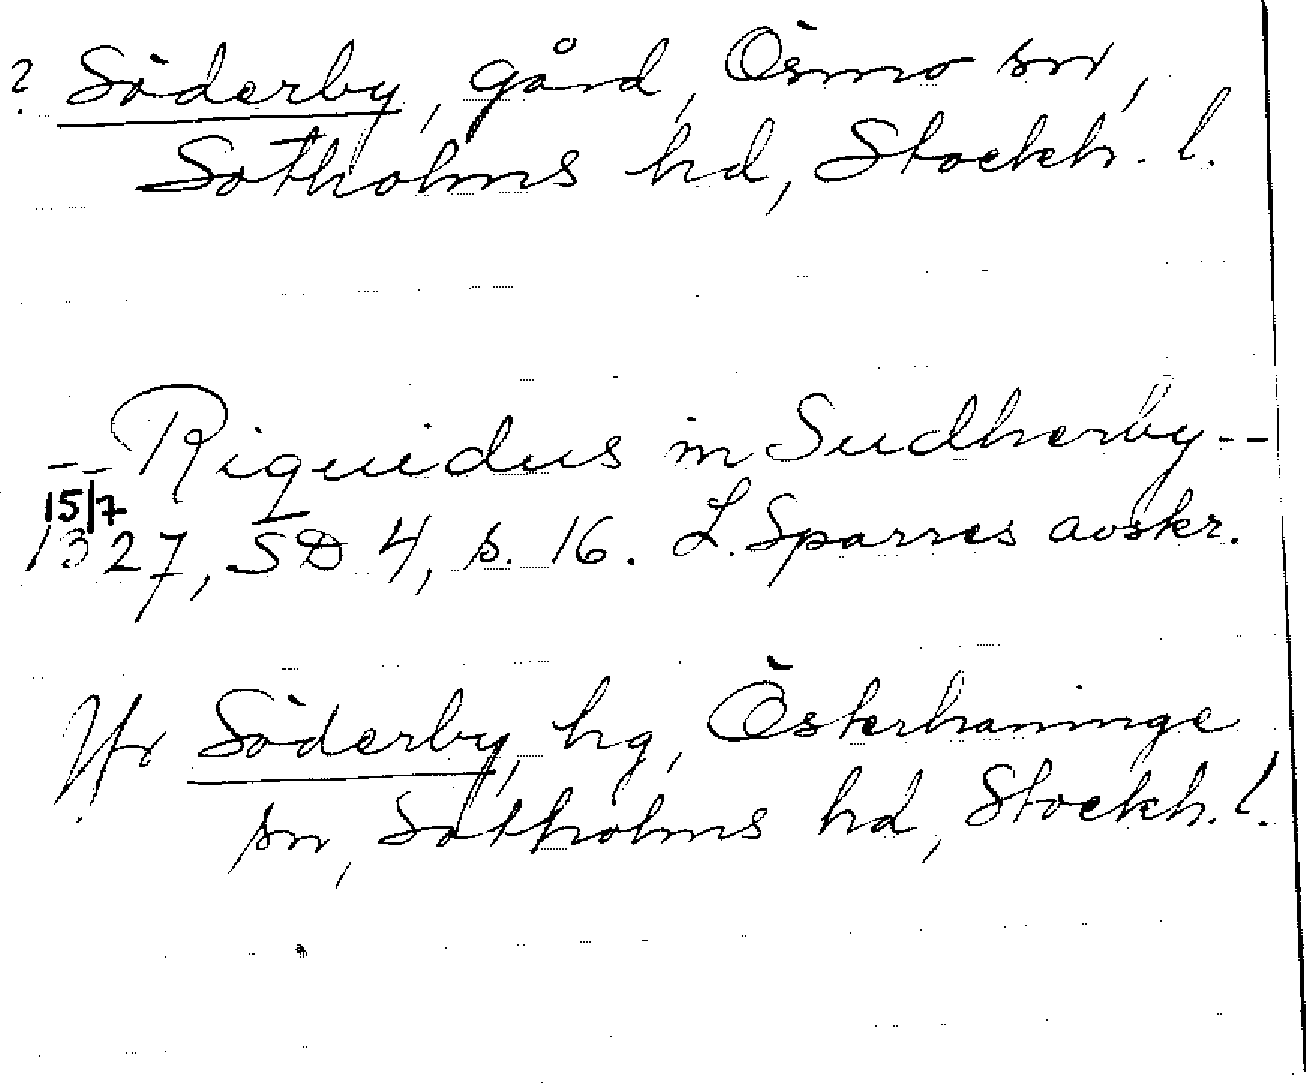 ? Söderby, gård, Ösmo sn,
Sotholms hd, Stockh. l.
-- Riquidus in Sudherby --
15/7
1327, SD 4, s. 16. L. Sparres avskr.
Jfr Söderby, hg, Österhaninge
sn, Sotholms hd, Stockh. l.